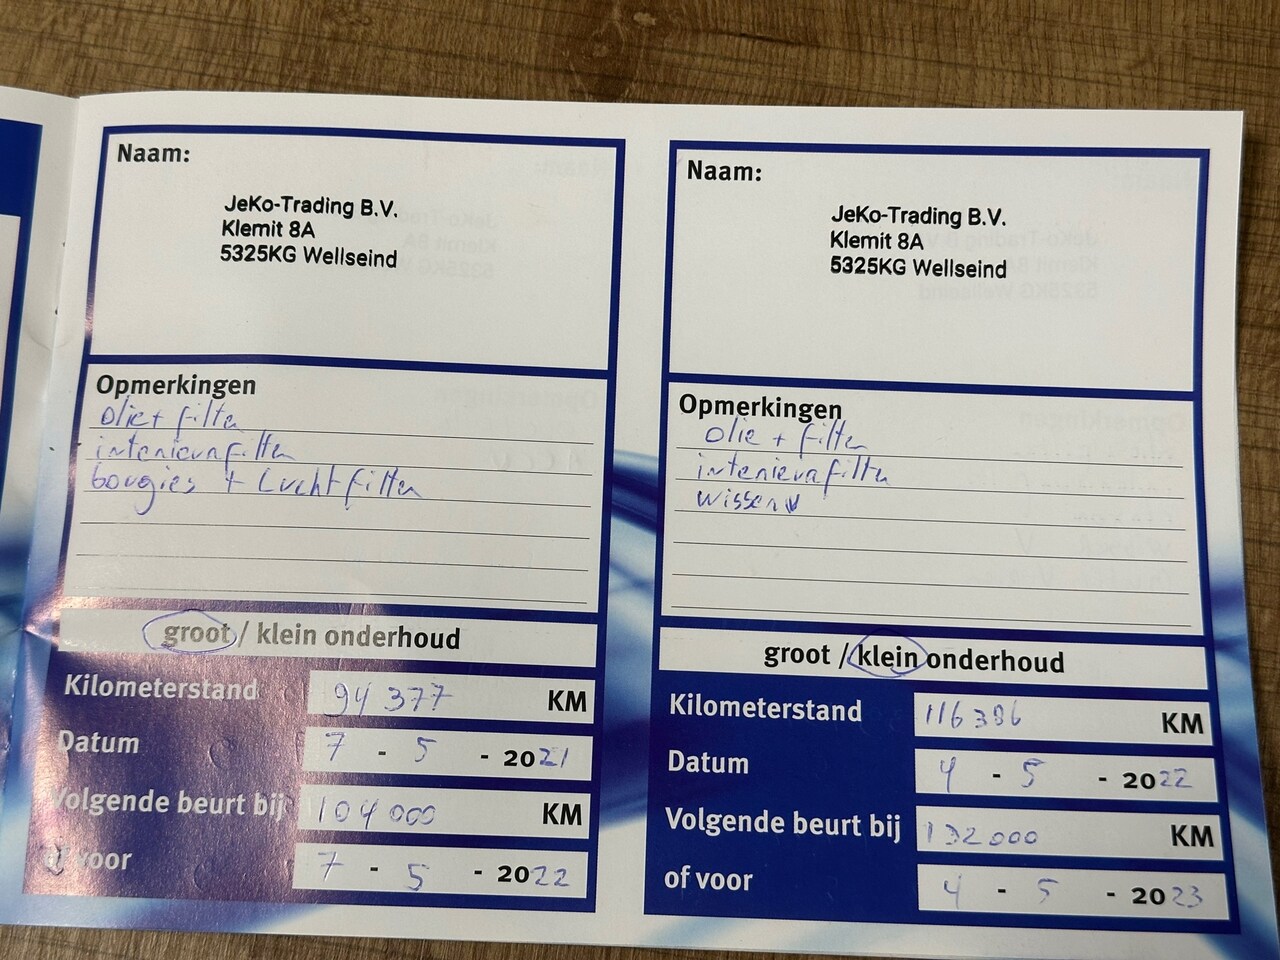 Naam:
JeKo-Trading B.V.
Klemit 8A
5325KG Wellseind
Opmerkingen
olie + filter
interieurfilter
bougies + Luchtfilter
groot / klein onderhoud
Kilometerstand 94 377 KM
Datum 7 - 5 - 2021
Volgende beurt bij 104 000 KM
of voor 7 - 5 - 2022
Naam:
JeKo-Trading B.V.
Klemit 8A
5325KG Wellseind
Opmerkingen
olie + filter
interieurfilter
wissen
groot / klein onderhoud
Kilometerstand 116 386 KM
Datum 4 - 5 - 2022
Volgende beurt bij 132 000 KM
of voor 4 - 5 - 2023